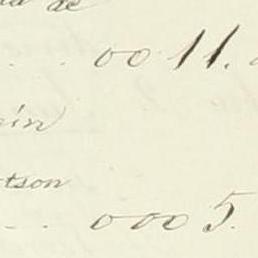 de
. . . 0011.
rin
tson
. . . 0005.